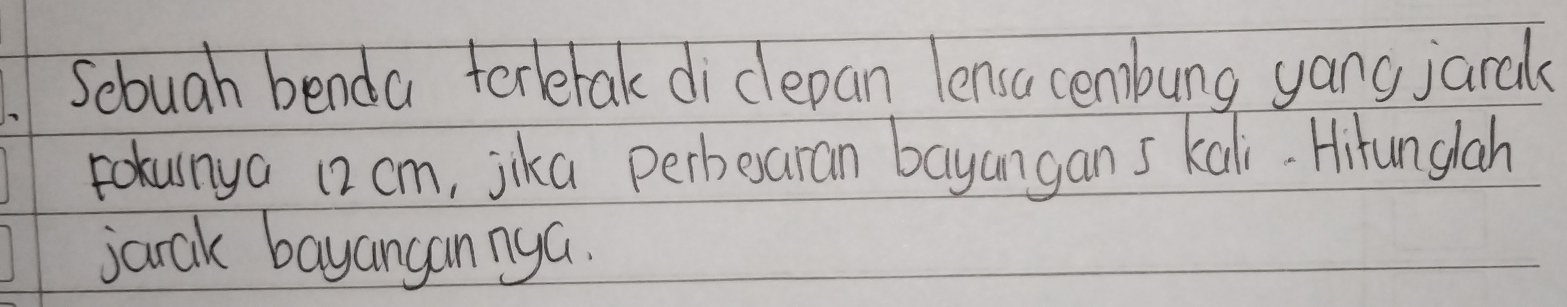 1. Sebuah benda terletak di depan lensa cembung yang jarak
Fokusnya 12 cm, jika Perbesaran bayangan 5 kali. Hitunglah
jarak bayangannya.